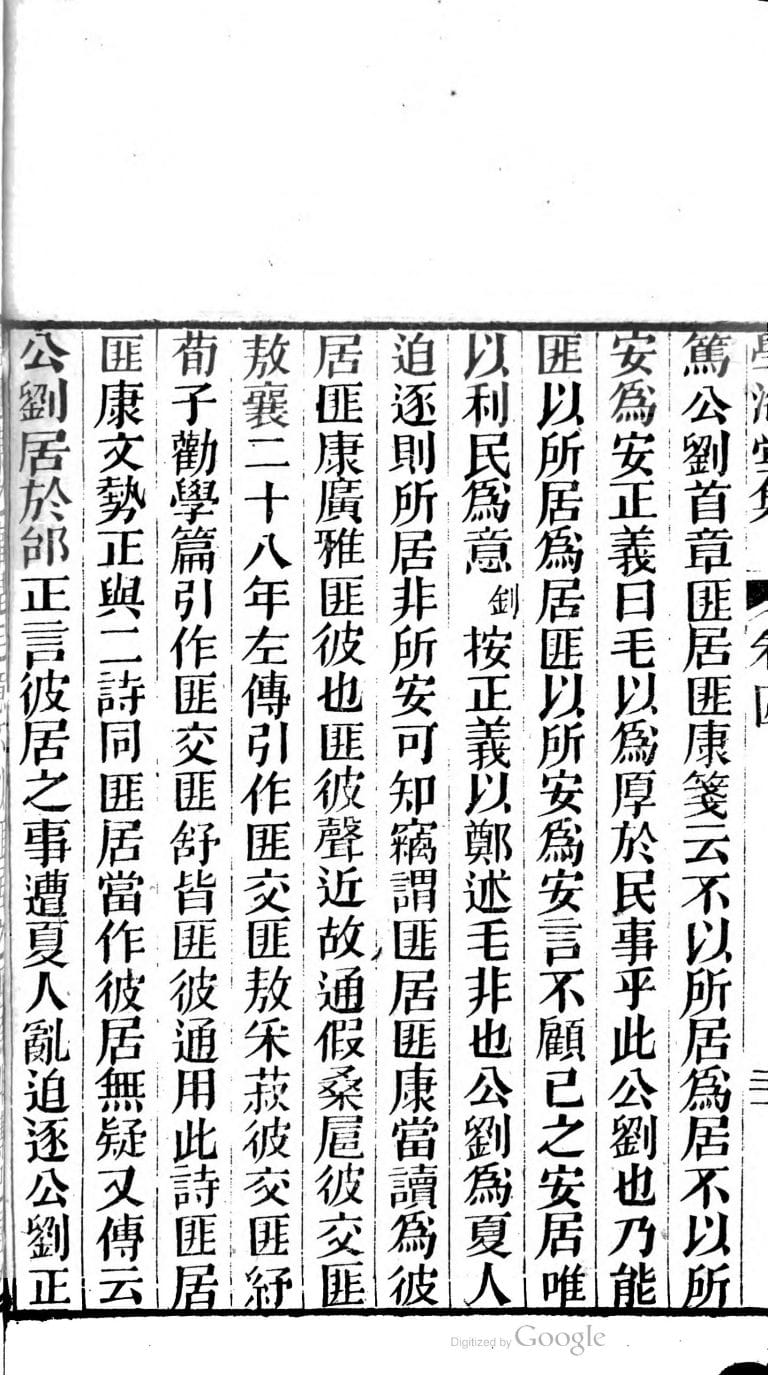 學海堂集 卷四 三
篤公劉首章匪居匪康箋云不以所居爲居不以所
安爲安正義曰毛以爲厚於民事乎此公劉也乃能
匪以所居爲居匪以所安爲安言不顧己之安居唯
以利民爲意釗按正義以鄭述毛非也公劉爲夏人
迫逐則所居非所安可知竊謂匪居匪康當讀爲彼
居匪康廣雅匪彼也匪彼聲近故通假桑扈彼交匪
敖襄二十八年左傳引作匪交匪敖采菽彼交匪紓
荀子勸學篇引作匪交匪舒皆匪彼通用此詩匪居
匪康文勢正與二詩同匪居當作彼居無疑又傳云
公劉居於邰正言彼居之事遭夏人亂迫逐公劉正
Digitized by Google